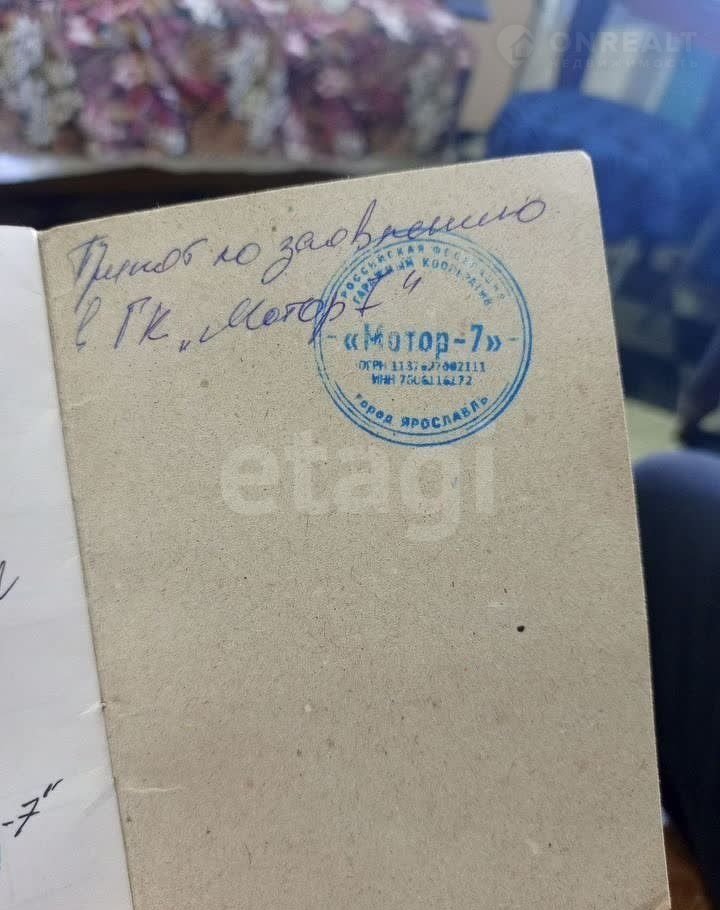 ONREALT
НЕДВИЖИМОСТЬ
Принят по заявлению
в ГК „Мотор-7"
РОССИЙСКАЯ ФЕДЕРАЦИЯ
ГАРАЖНЫЙ КООПЕРАТИВ
«Мотор-7»
ОГРН
ИНН
город ЯРОСЛАВЛЬ
etagi
-7"